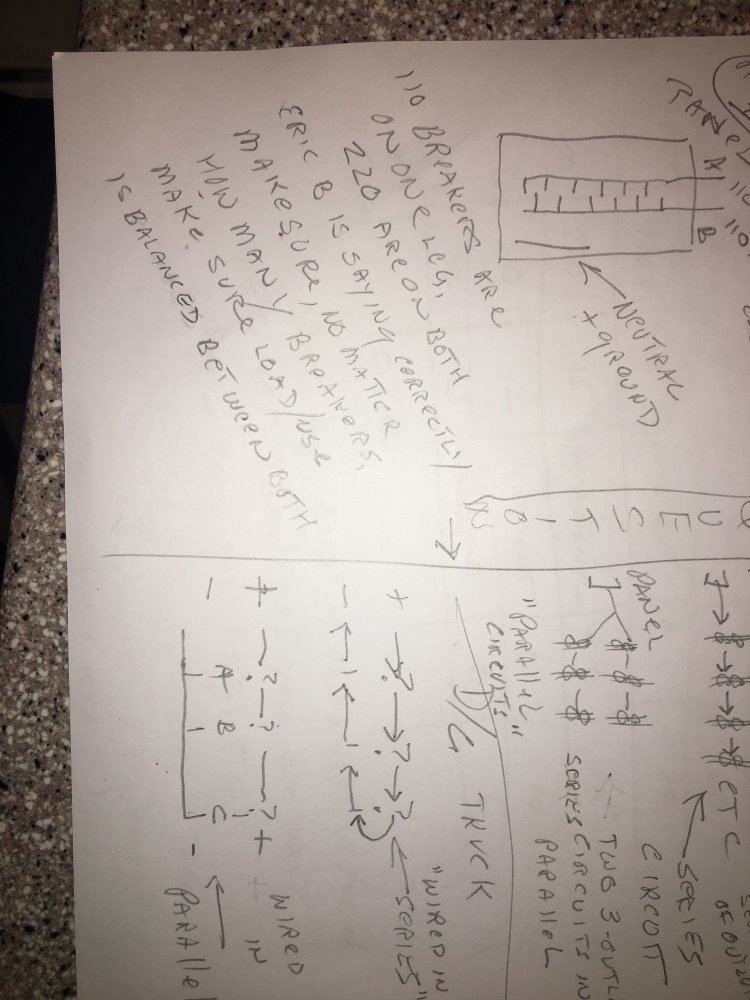 PANEL
A 110
B 110
NEUTRAL
+ GROUND
110 BREAKERS ARE
ON ONE LEG,
220 ARE ON BOTH
ERIC B IS SAYING CORRECTLY
MAKE SURE, NO MATTER
HOW MANY BREAKERS,
MAKE SURE LOAD/USE
IS BALANCED BETWEEN BOTH
ETC
SERIES
CIRCUIT
PANEL
TWO 3-OUTL
SERIES CIRCUITS IN
PARALLEL
"PARALLEL
CIRCUITS"
D/C TRUCK
+
-
"WIRED IN
SERIES"
+ +
A B C
- -
WIRED
IN
PARALLEL